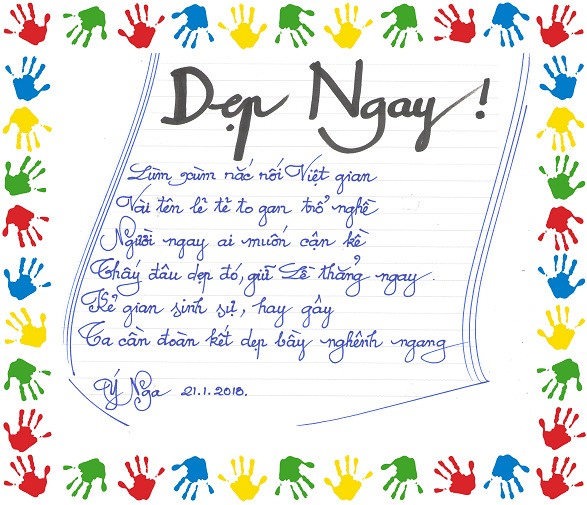 Dẹp Ngay !
Lùm xùm rắc rối Việt gian
Vài tên lẻ tẻ to gan trổ nghề
Người ngay ai muốn cận kề
Thấy đâu dẹp đó, giữ Lề thẳng ngay.
Kẻ gian sinh sự, hay gây
Ta cần đoàn kết dẹp bầy nghênh ngang
Ý Nga 21.1.2018.